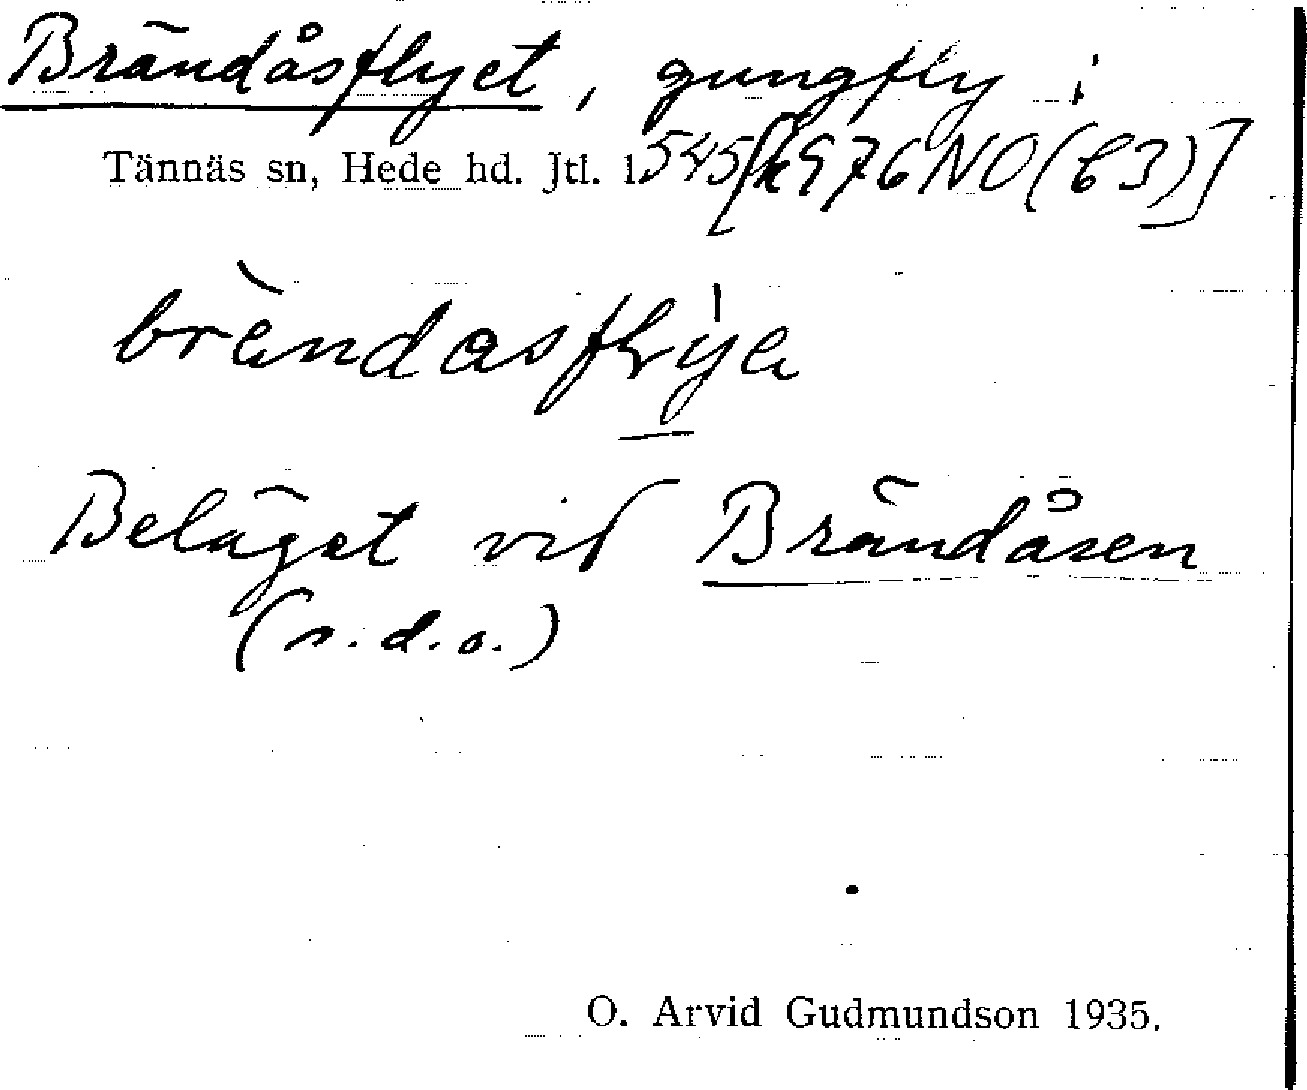 Brändåsflyet, gungfly i
Tännäs sn, Hede hd. Jtl. l. 545 [k 976 NO (C3)]
Beläget vid Brändåsen
(s.d.o.)
O. Arvid Gudmundson 1935.